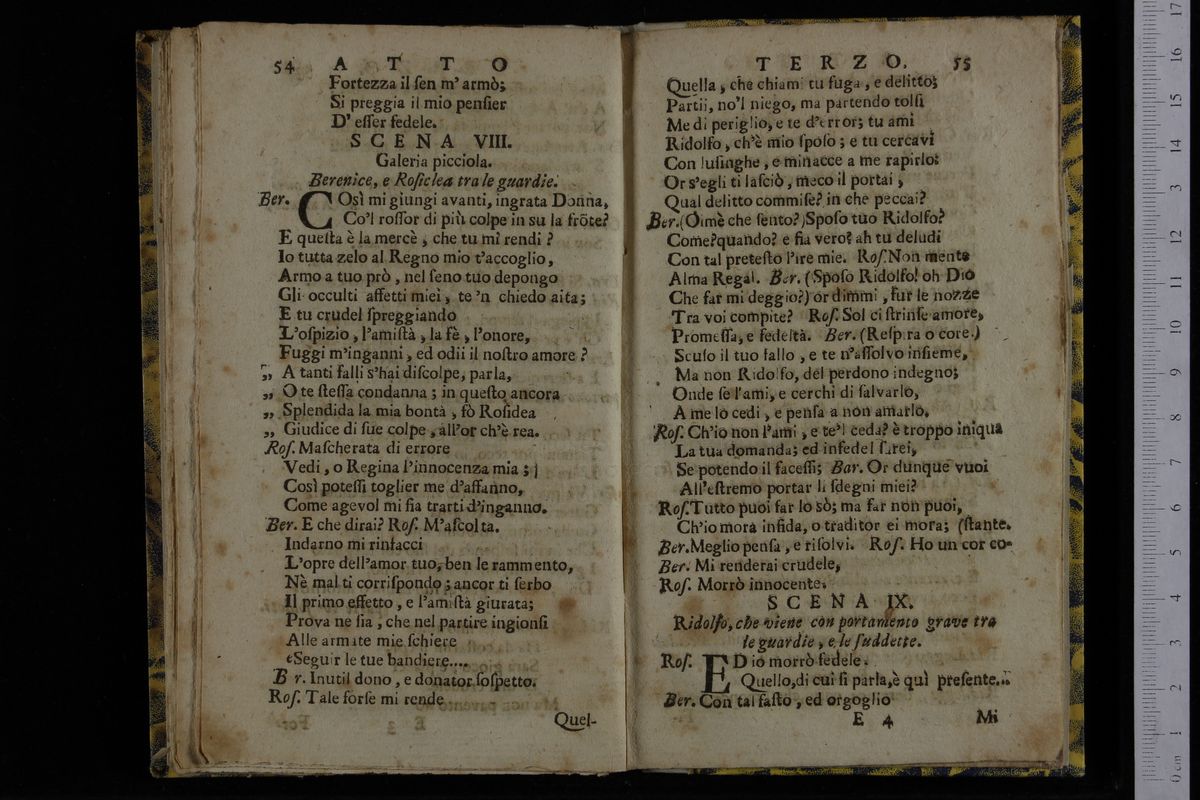 54 A T T O
Fortezza il ſen m' armò;
Si preggia il mio penſier
D' eſſer fedele.
S C E N A VIII.
Galeria picciola.
Berenice, e Roſiclea tra le guardie.
Ber. COsì mi giungi avanti, ingrata Donna,
Co'l roſſor di più colpe in su la frōte?
E queſta è la mercè, che tu mi rendi?
Io tutta zelo al Regno mio t'accoglio,
Armo a tuo prò, nel ſeno tuo depongo
Gli occulti affetti miei, te 'n chiedo aita;
E tu crudel ſpreggiando
L'oſpizio, l'amiſtà, la fè, l'onore,
Fuggi m'inganni, ed odii il noſtro amore?
„ A tanti falli s'hai diſcolpe, parla,
„ O te ſteſſa condanna; in queſto ancora
„ Splendida la mia bontà, fò Roſidea
„ Giudice di ſue colpe, all'or ch'è rea.
Roſ. Maſcherata di errore
Vedi, o Regina l'innocenza mia;
Così poteſſi toglier me d'affanno,
Come agevol mi fia trarti d'inganno.
Ber. E che dirai? Roſ. M'aſcolta.
Indarno mi rinfacci
L'opre dell'amor tuo, ben le rammento,
Nè mal ti corriſpondo; ancor ti ſerbo
Il primo effetto, e l'amiſtà giurata;
Prova ne ſia, che nel partire ingionſi
Alle armate mie ſchiere
Seguir le tue bandiere....
B r. Inutil dono, e donator ſoſpetto.
Roſ. Tale forſe mi rende
Quel-
T E R Z O. 55
Quella, che chiami tu fuga, e delitto;
Partii, no'l niego, ma partendo tolſi
Me di periglio, e te d'error; tu ami
Ridolfo, ch'è mio ſpoſo; e tu cercavi
Con luſinghe, e minacce a me rapirlo:
Or s'egli ti laſciò, meco il portai,
Qual delitto commiſe? in che peccai?
Ber. (Oimè che ſento?) Spoſo tuo Ridolfo?
Come? quando? e fia vero? ah tu deludi
Con tal preteſto l'ire mie. Roſ. Non mente
Alma Regal. Ber. (Spoſo Ridolfo! oh Dio
Che far mi deggio?) or dimmi, fur le nozze
Tra voi compite? Roſ. Sol ci ſtrinſe amore,
Promeſſa, e fedeltà. Ber. (Reſpira o core.)
Scuſo il tuo fallo, e te n'aſſolvo inſieme,
Ma non Ridolfo, del perdono indegno;
Onde ſe l'ami, e cerchi di ſalvarlo,
A me lo cedi, e penſa a non amarlo.
Roſ. Ch'io non l'ami, e te'l ceda? è troppo iniqua
La tua domanda; ed infedel ſarei,
Se potendo il faceſſi; Bar. Or dunque vuoi
All'eſtremo portar li ſdegni miei?
Roſ. Tutto puoi far lo sò; ma far non puoi,
Ch'io mora infida, o traditor ei mora; (ſtante.
Ber. Meglio penſa, e riſolvi. Roſ. Ho un cor co-
Ber. Mi renderai crudele,
Roſ. Morrò innocente.
S C E N A IX.
Ridolfo, che viene con portamento grave tra
le guardie, e le ſuddette.
Roſ. ED io morrò fedele.
Quello, di cui ſi parla, è quì preſente...
Ber. Con tal faſto, ed orgoglio
E 4 Mi